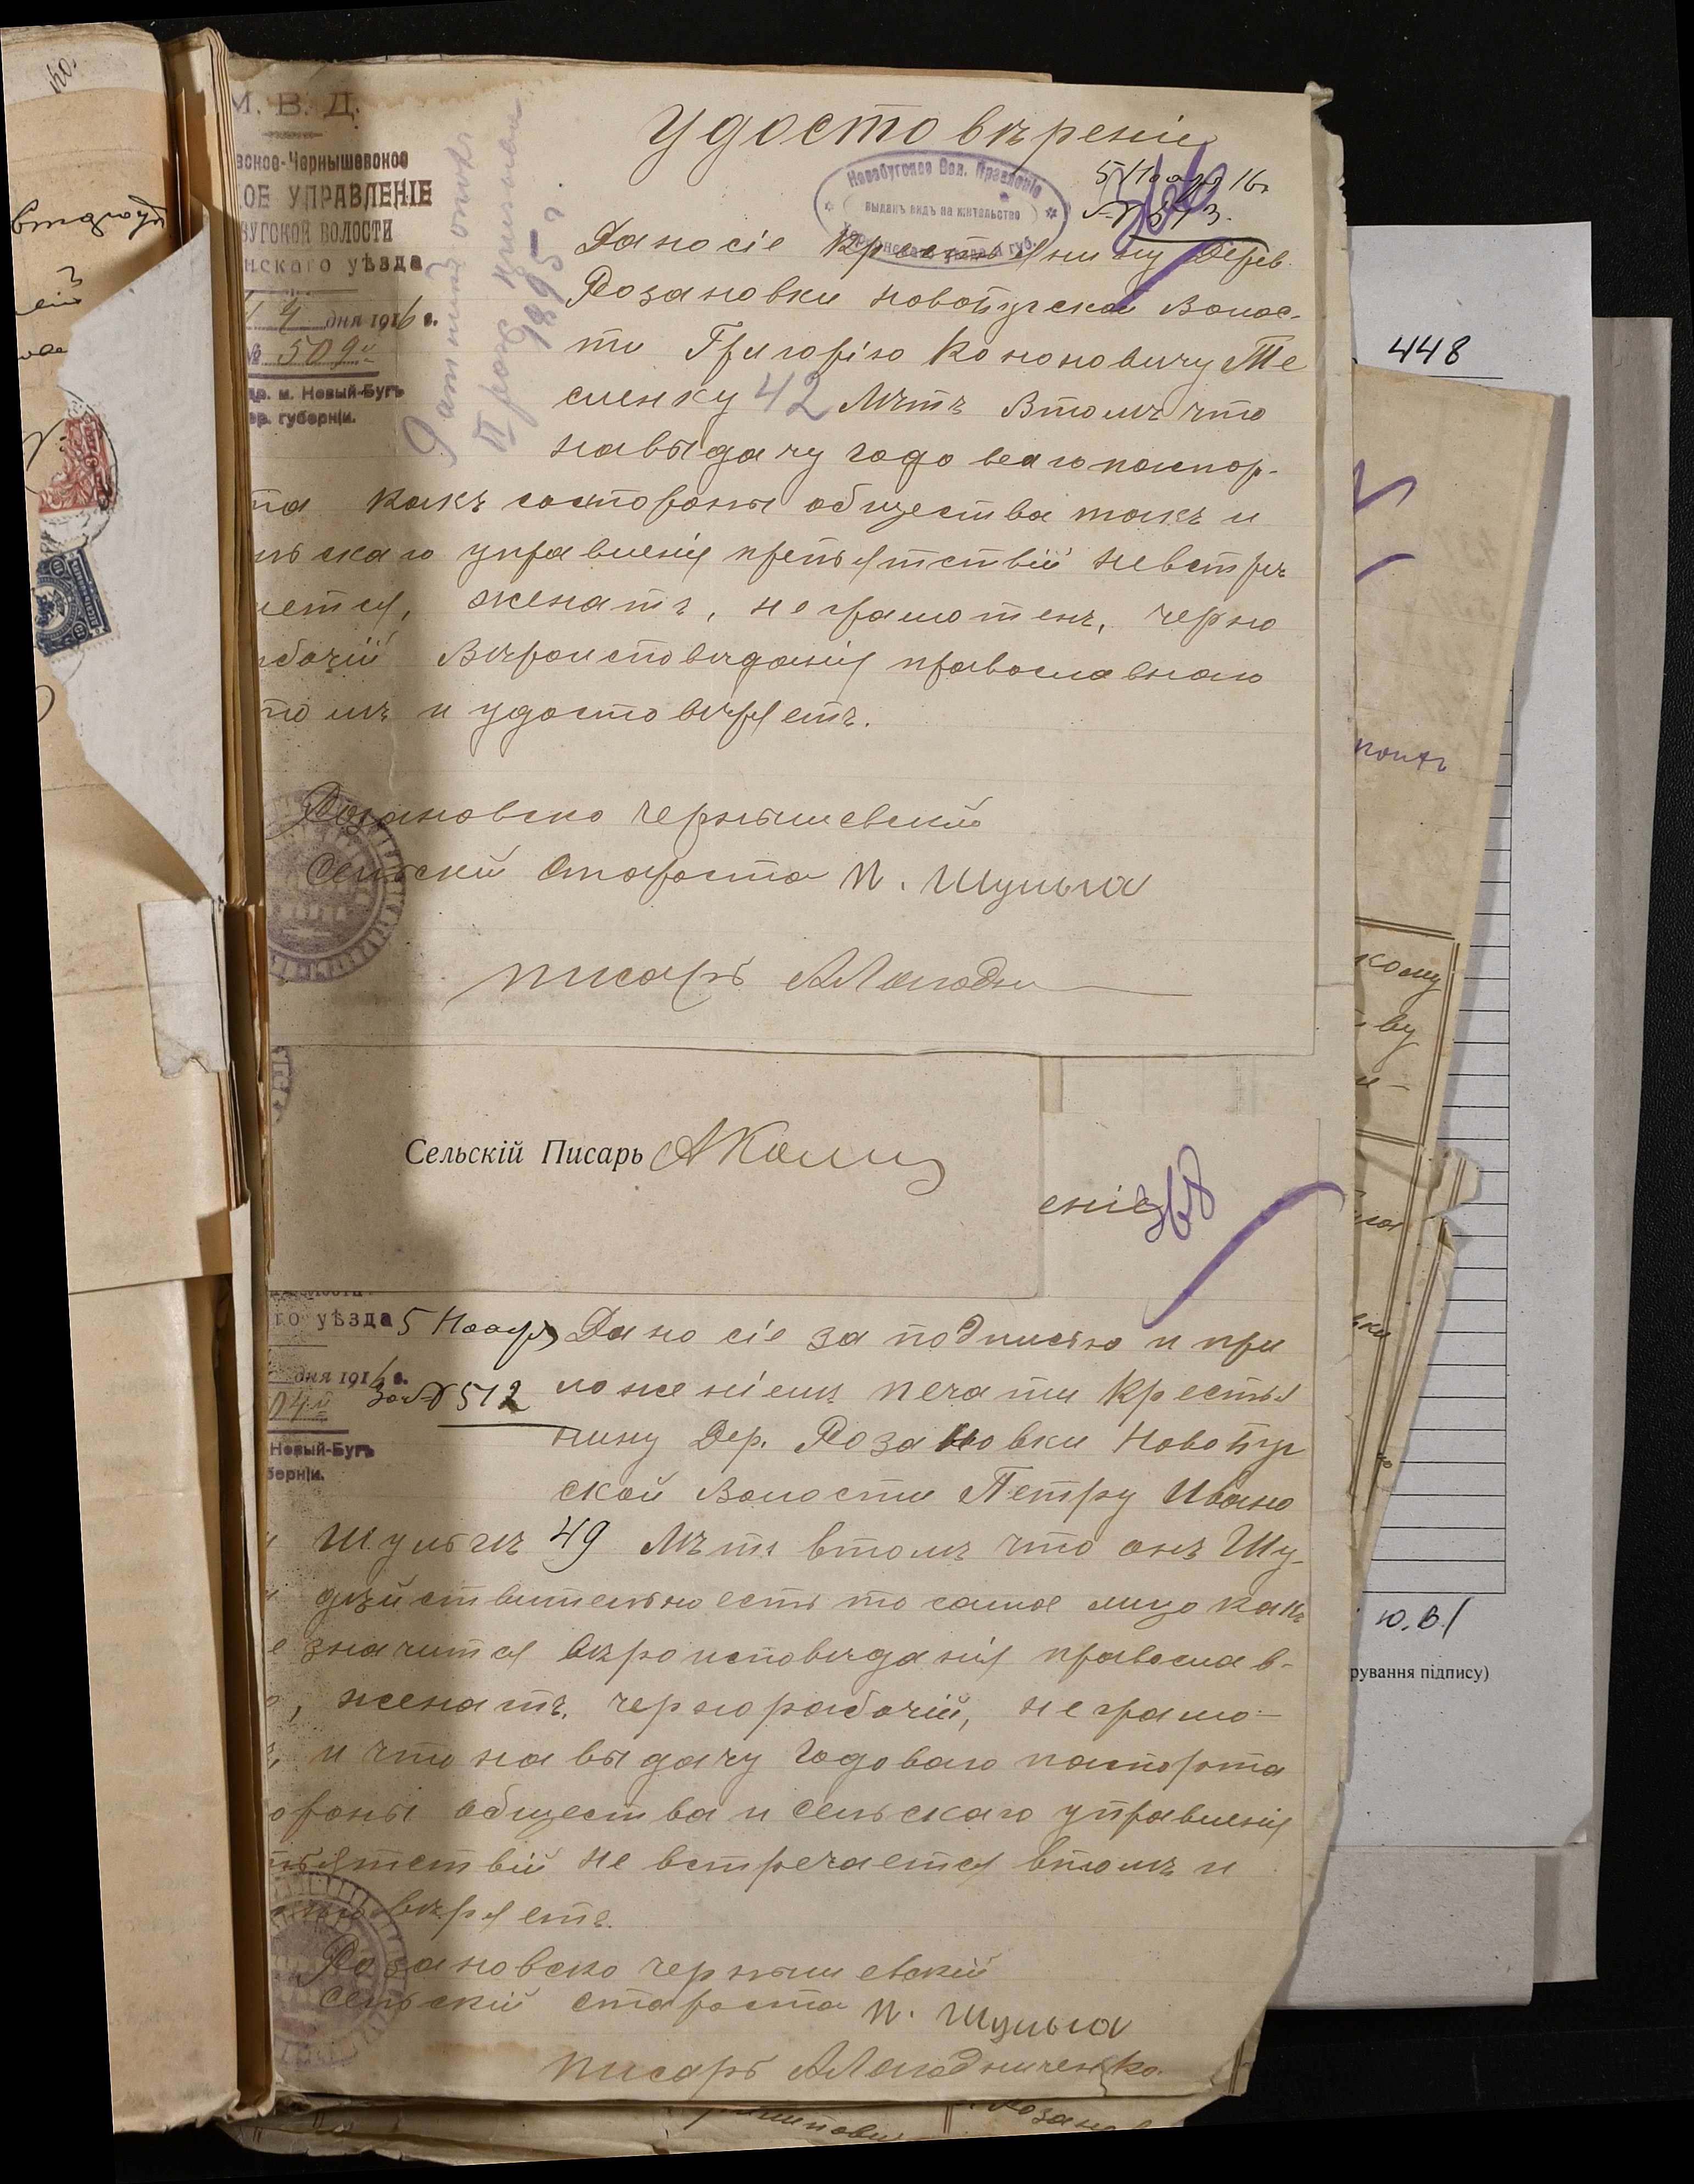 140.
М. В. Д.
вское-Чернышевское
ОЕ УПРАВЛЕНІЕ
БУГСКОЙ ВОЛОСТИ
нскаго уѣзда
4 дня 1916 г.
№ 509
м. Новый-Бугъ
ер. губерніи.
Удостовѣреніе
Новобугское Вол. Правленіе
выданъ видъ на жительство
5/11 16 г
Дано сіе Крестьянину Дерев.
Розановки Новобугской Волос-
ти Григорію Кононовичу Те
сленку 42 Лѣтъ Втомъ что
на выдачу годоваго паспор-
та какъ состороны общества такъ и
льскаго управленія препятствій невстрѣ
чается, женатъ, неграмотенъ, черно
бочій Вѣроисповѣданія православнаго
томъ и удостовѣряетъ.
Розановско Чернышевскій
Сельскій Староста П. Шульга
писарь
Ратникъ опол
II рода призыва
1895 г.
Сельскій Писарь
еніе
368
го уѣзда
дня 1916 г.
04
Новый-Бугъ
берніи.
5 Нояб
За № 512
Дано сіе за подписью и при
ложеніемъ печати Крестья
нину Дер. Розановки Новобуг
ской Волости Петру Ивано
Шульгѣ 49 Лѣтъ втомъ что онъ Шу-
дѣйствительно есть то самое лицо какъ
е значится вѣроисповѣданія православ-
, женатъ, чернорабочій, неграмо-
, и что на выдачу годоваго паспорта
ороны общества и сельскаго управленія
пятствій не встречается втомъ и
вѣряетъ.
Розановско Чернышевскій
сельскій староста П. Шульга
писарь А Лагодниченко.
448
кому
ву
ю.в./
рування підпису)